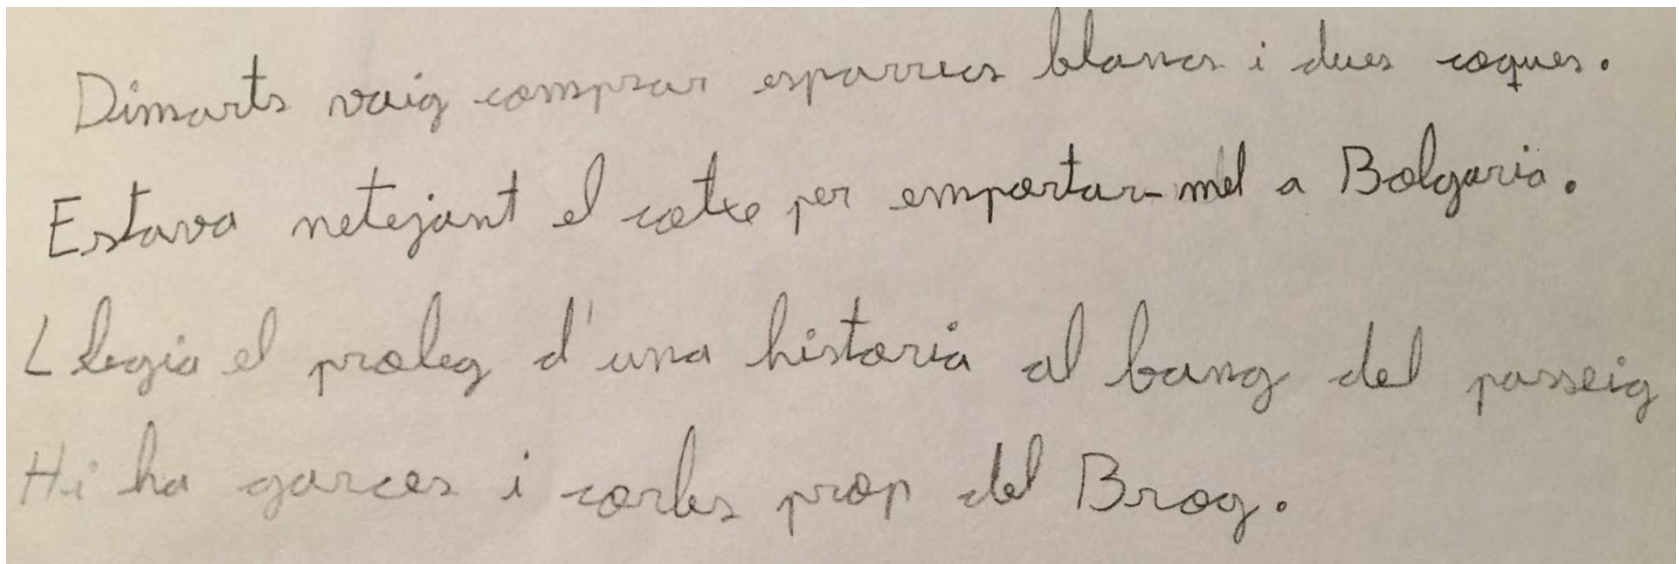 Dimarts vaig comprar esparrecs blancs i dues coques.
Estava netejant el cotxe per emportar-mel a Bolgaria.
Llegia el proleg d'una historia al bang del passeig
Hi ha garces i corbs prop del Brog.